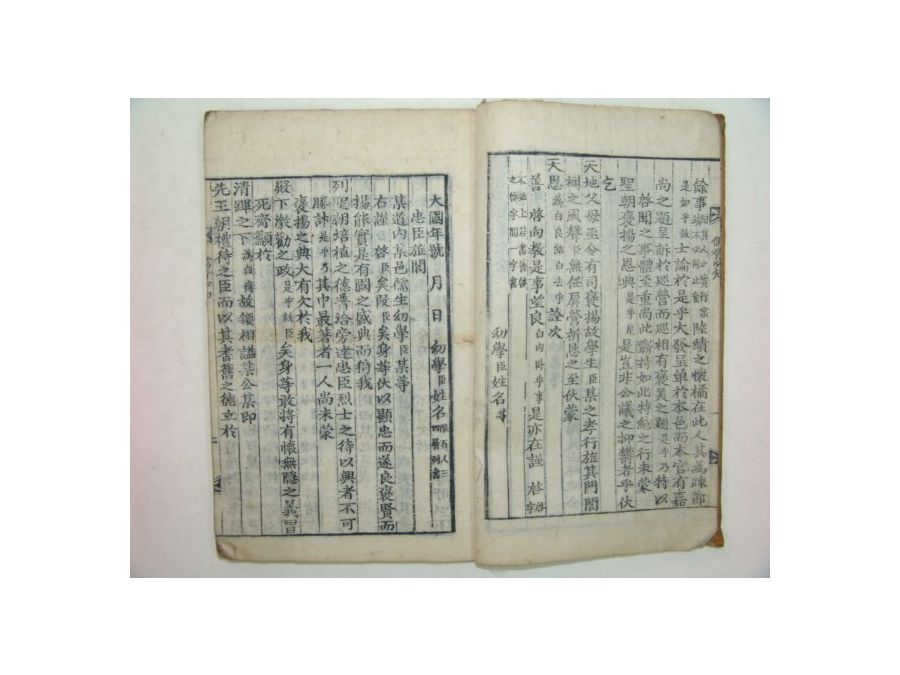 餘事
陸績之懷橘在此人其爲疎節
是如乎故士論於是乎大發呈單於本邑而本官有嘉
尚之題呈訴於巡營而巡相有褒美之題是乎乃特以
啓聞之事體至重尚此
聖朝褒揚之恩典是乎尼豈非公議之抑鬱者乎伏
乞
天地父母亟令有司褒揚故學生臣某之孝行旌其門閭
樹之風聲臣無任屛營祈懇之至伏蒙
天恩爲白良結白去乎詮次
善啓向敎是事望良白內卧乎事是亦在謹啓
幼學臣姓名等
大國年號 月 日 幼學臣姓名
忠臣旌閭
某道內某邑儒生幼學臣某等
右謹啓臣矣段臣矣身等伏以顯忠而遂良褒賢而
揚能實是有國之盛典而猗我
列聖朝培植之德普洽旁達忠臣烈士之待以興者不可
勝計是乎乃其中最著者一人尚未蒙
褒揚之典大有欠於我
殿下激勸之政是乎故臣矣身等敢將有懷無隱之義冒
死齊籲於
淸蹕之下
故領相諡某公某卽
先王朝禮待之臣而以其耆舊之德立於